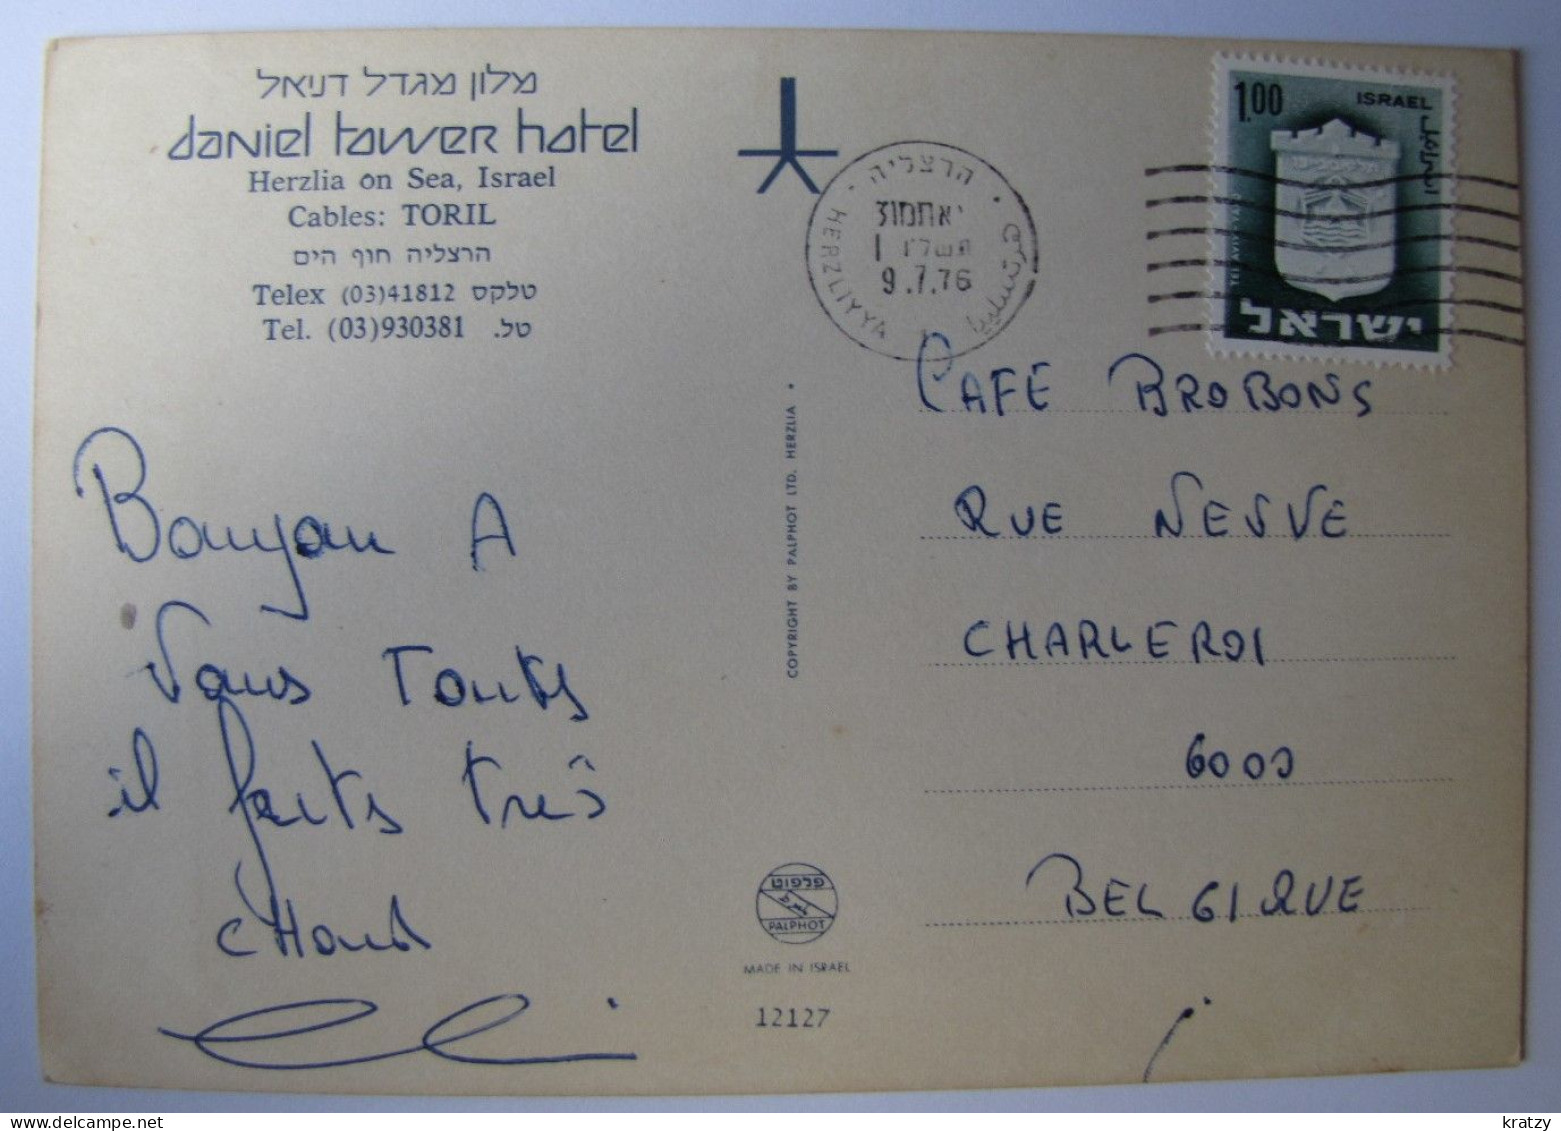 מלון מגדל דניאל
daniel tower hotel
Herzlia on Sea, Israel
Cables: TORIL
הרצליה חוף הים
Telex (03)41812 טלקס
Tel. (03)930381 טל.
Bonjour A
Vous Touts
il faits très
cHaud
COPYRIGHT BY PALPHOT LTD. HERZLIA
פלפוט
PALPHOT
MADE IN ISRAEL
12127
הרצליה
HERZLIYYA
יאתמוז
תשל"ו
9.7.76
1.00 ISRAEL
إسرائيل
TEL AVIV-YAFO
תל-אביב-יפו
ישראל
CAFE BROBONS
RUE NEUVE
CHARLEROI
6000
BELGIQUE
delcampe.net
kratzy